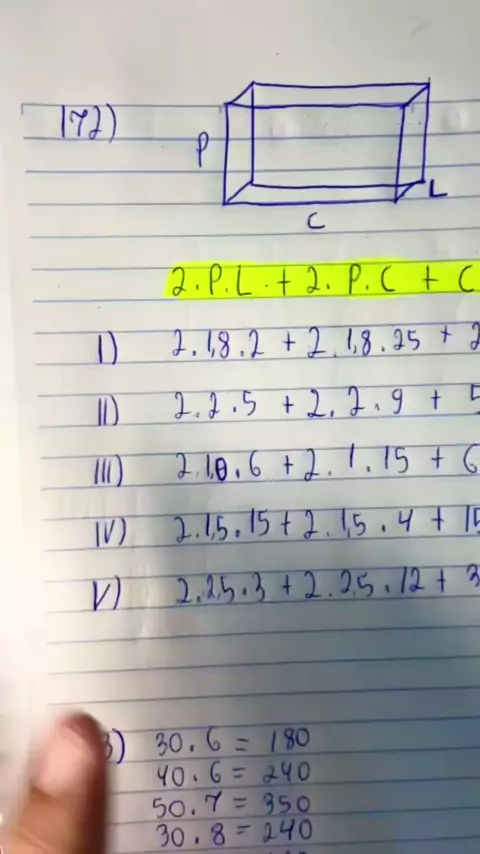 172)
P
L
C
2.P.L. + 2.P.C + C
I) 2.1,8.2 + 2.1,8.25 + 2
II) 2.2.5 + 2.2.9 + 5
III) 2.1,0.6 + 2.1.15 + 6
IV) 2.1,5.15 + 2.1,5.4 + 15
V) 2.2,5.3 + 2.2,5.12 + 3
3) 30.6 = 180
40.6 = 240
50.7 = 350
30.8 = 240